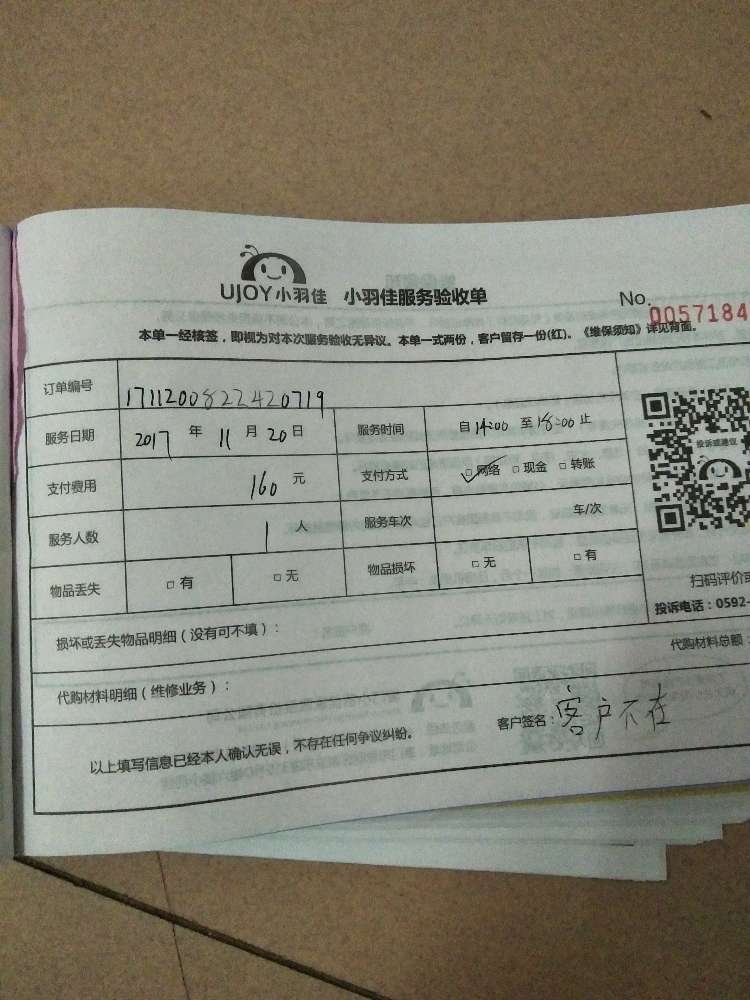 UJOY小羽佳 小羽佳服务验收单 No. 0057184
本单一经核签，即视为对本次服务验收无异议。本单一式两份，客户留存一份(红)。《维保须知》详见背面。
订单编号 1711200822420719
服务日期 2017 年 11 月 20 日 服务时间 自 14:00 至 18:00 止
投诉或建议
支付费用 160 元 支付方式 网络 现金 转账
服务人数 1 人 服务车次 车/次
物品丢失 有 无 物品损坏 无 有
扫码评价或
投诉电话：0592-
损坏或丢失物品明细（没有可不填）：
代购材料明细（维修业务）： 代购材料总额：
以上填写信息已经本人确认无误，不存在任何争议纠纷。 客户签名：客户不在